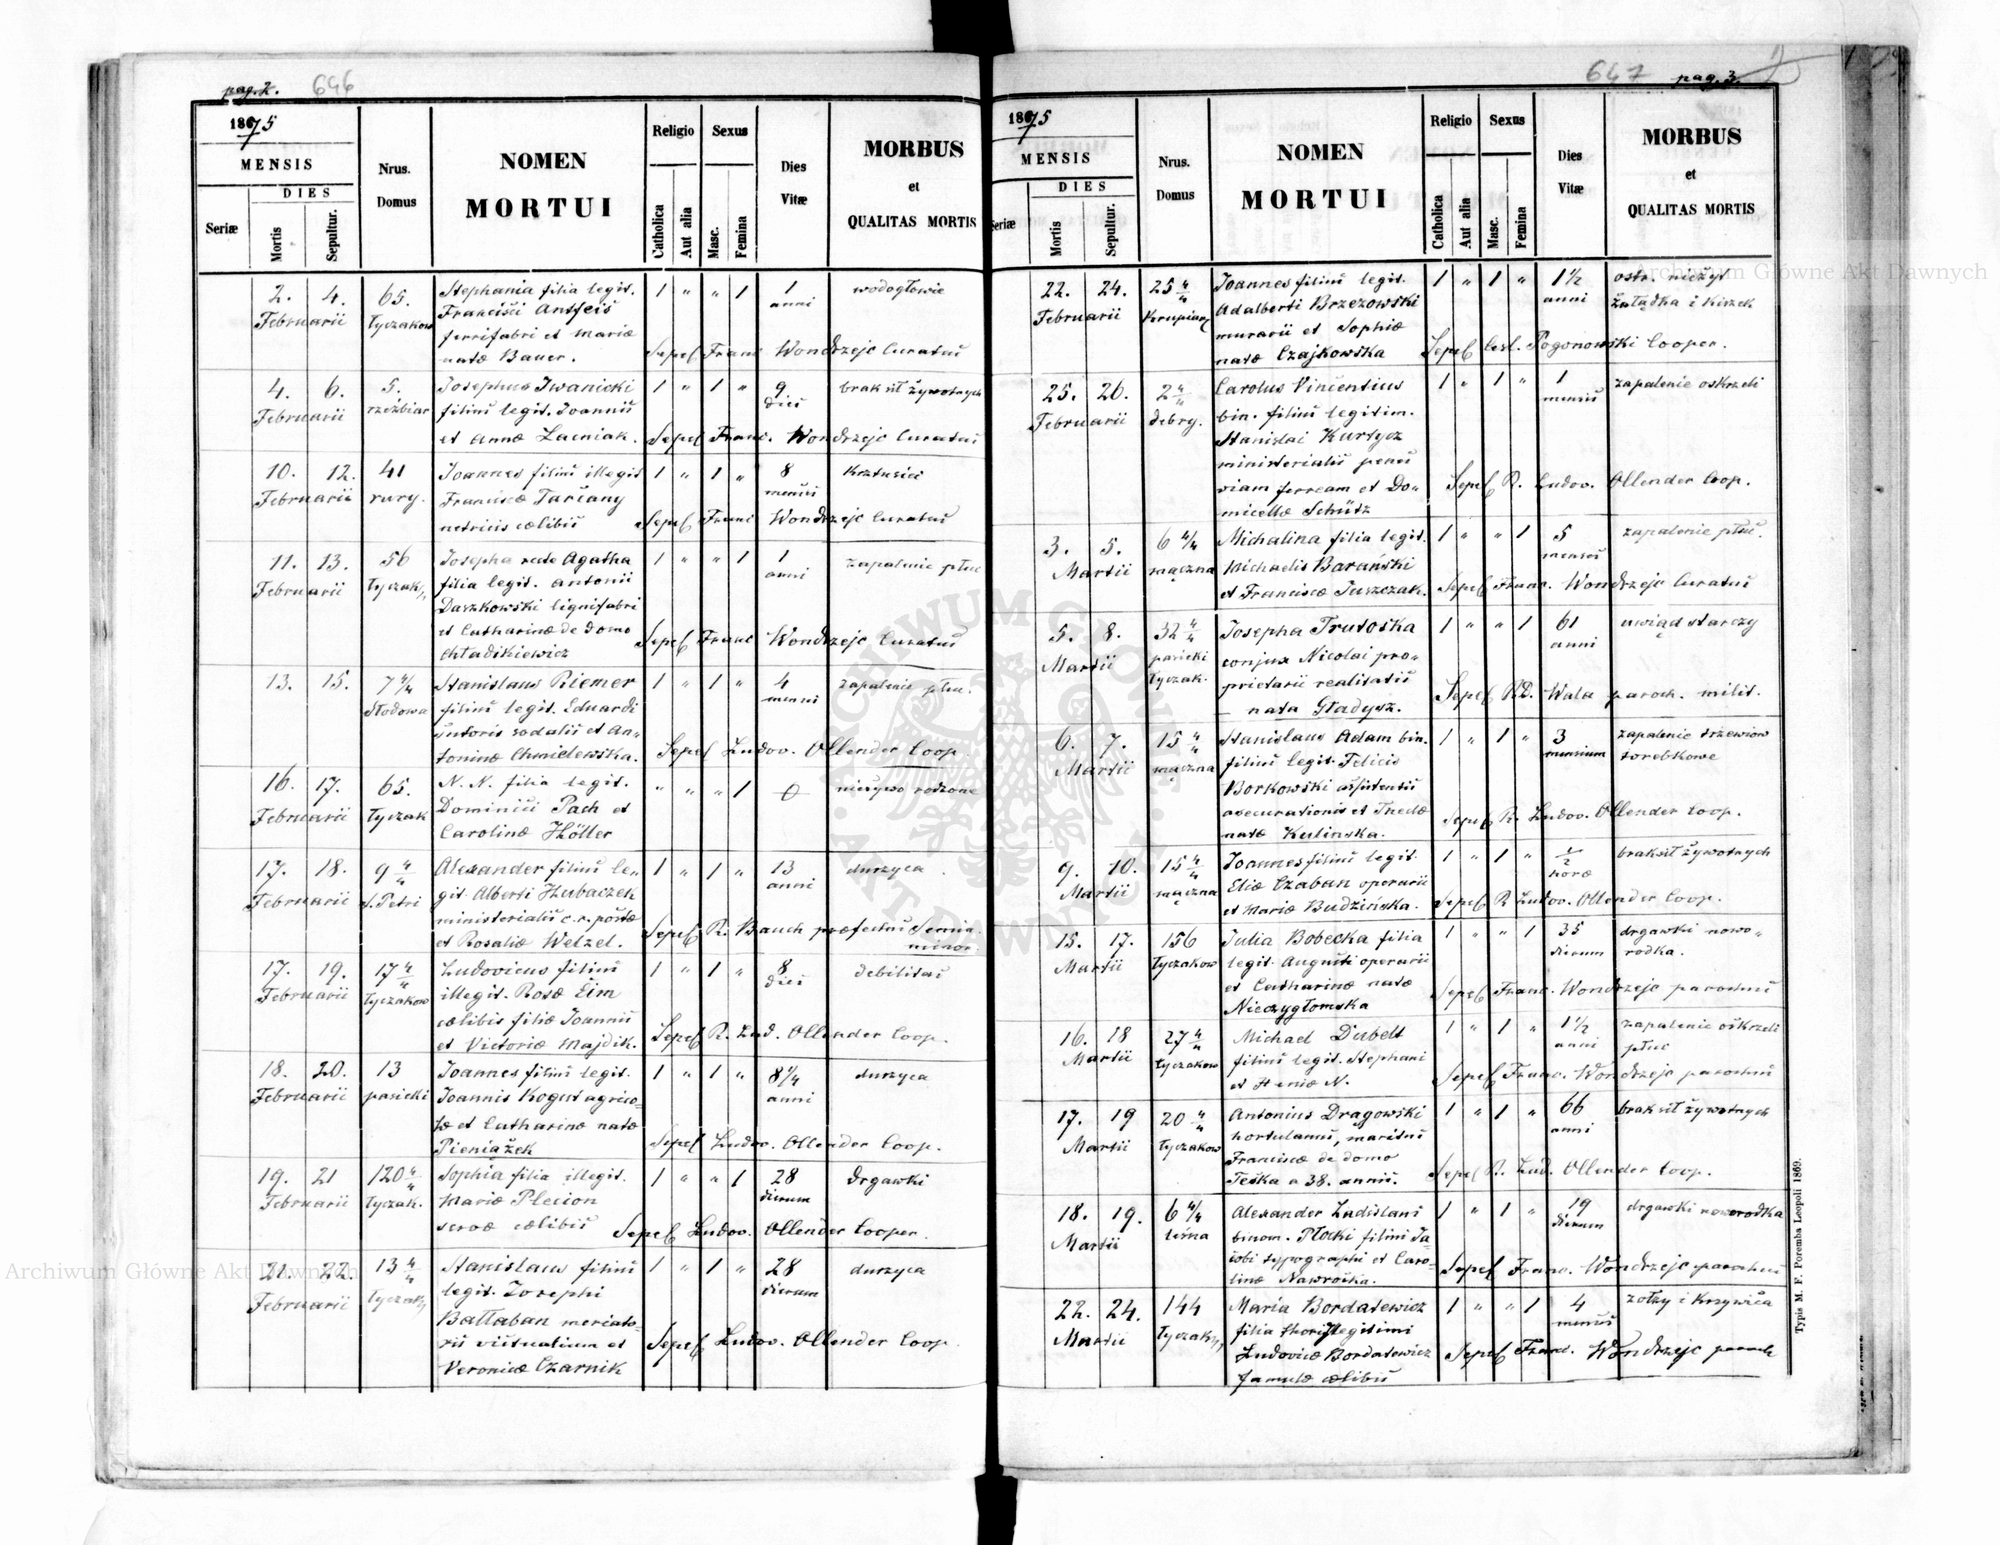 pag. 2. 646
1875
MENSIS
DIES
Seriæ
Mortis
Sepultur.
Nrus.
Domus
NOMEN
MORTUI
Religio
Catholica
Aut alia
Sexus
Masc.
Femina
Dies
Vitæ
MORBUS
et
QUALITAS MORTIS
2. 4. 65. Stephania filia legit. 1 " " 1 1 wodogłowie
Februarii Łyczakow Francisci anni
ferrifabri et Mariæ
natæ Bauer. Sepel Franc Wondrzejc Curatus
4. 6. 5. Josephus Iwanicki 1 " 1 " 9 brak sił żywotnych
Februarii rzeźbiar filius legit. Joannis dies
et Annæ Łacniak. Sepel Franc. Wondrzejc Curatus
10. 12. 41 Joannes filius illegit 1 " 1 " 8 Krztusiec
Februarii rury. Franciscæ menses
nutricis cœlibis Sepel Franc Wondrzejc Curatus
11. 13. 56 Josepha recte Agatha 1 " " 1 1 zapalenie płuc
Februarii Łyczak filia legit. Antonii anni
Daszkowski lignifabri
et Catharinæ de domo Sepel Franc Wondrzejc Curatus
13. 15. 7 4/4 Stanislaus Riemer 1 " 1 " 4 zapalenie płuc.
Słodowa filius legit. Eduardi
sutoris sodalis et An-
toninæ Chmielewska. Sepel Ludov. Ollender Coop.
16. 17. 65. N. N. filia legit. " " " 1 0 nieżywo rodzone
Februarii Łyczak Dominici Pach et
Carolinæ Höller
17. 18. 9 4/4 Alexander filius le- 1 " 1 " 13 durzyca
Februarii S. Petri git. Alberti Hubaczek anni
ministerialis c. r. postæ
et Rosaliæ Welzel. Sepel R. Bauch præfectus Semin.
minor.
17. 19. 17 4/4 Ludovicus filius 1 " 1 " 8 debilitas
Februarii Łyczakow illegit. Rosæ Eim dies
cœlibis filiæ Joannis
et Victoriæ Majdik. Sepel R. Lud. Ollender Coop.
18. 20. 13 Joannes filius legit. 1 " 1 " 8 1/4 durzyca
Februarii pasieki Joannis Kogut agrico- anni
læ et Catharinæ natæ
Pieniążek Sepel Ludov. Ollender Coop.
19. 21 120 4/4 Sophia filia illegit. 1 " " 1 28 drgawki
Februarii Łyczak. Mariæ Plecion dierum
servæ cœlibis Sepel Ludov. Ollender Cooper.
21. 22. 13 4/4 Stanislaus filius 1 " 1 " 28 durzyca
Februarii Łyczak legit. Josephi dierum
Bałłaban
victualium et Sepel Ludov. Ollender Coop.
Veronicæ Czarnik
647 pag. 3.
1875
MENSIS
DIES
Seriæ
Mortis
Sepultur.
Nrus.
Domus
NOMEN
MORTUI
Religio
Catholica
Aut alia
Sexus
Masc.
Femina
Dies
Vitæ
MORBUS
et
QUALITAS MORTIS
22. 24. 25 4/4 Joannes filius legit. 1 " 1 " 1 1/2 ostr. nieżyt
Februarii Krupiar Adalberti Brzezowski anni żołądka i kiszek
murarii et Sophiæ
natæ Czajkowska Sepel Cesl. Pogonowski Cooper.
25. 26. 2 4/4 Carolus Vincentius 1 " 1 " 1 zapalenie oskrzeli
Februarii debry. bin. filius legitim. mensis
Stanislai Kurtycz
ministerialis penes
viam ferream et Do- Sepel R. Ludov. Ollender Coop.
micellæ Schütz
3. 5. 6 4/4 Michalina filia legit. 1 " " 1 5 zapalenie płuc.
Martii mączna Michaelis Barański menses
et Franciscæ Juszczak. Sepel Franc. Wondrzejc Curatus
5. 8. 32 4/4 Josepha Trutoska 1 " " 1 61 uwiąd starczy
Martii pasieki conjux Nicolai pro- anni
Łyczak. prietarii realitatis
nata Gładysz. Sepel R. D. Wala paroch. milit.
6. 7. 15 4/4 Stanislaus Adam bin. 1 " 1 " 3 zapalenie trzewiow
Martii mączna filius legit. Felicis mensium torebkowe
Borkowski assistentis
asecurationis et Theclæ
natæ Kulinska. Sepel R. Ludov. Ollender Coop.
9. 10. 15 4/4 Joannes filius legit. 1 " 1 " 1/2 brak sił żywotnych
Martii mączna Eliæ Czaban operarii horæ
et Mariæ Budzińska. Sepel R Ludov. Ollender Coop.
15. 17. 156 Julia Bobecka filia 1 " " 1 35 drgawki nowo-
Martii Łyczakow legit. Augusti operarii dierum rodka.
et Catharinæ natæ
Niezgłomska Sepel Franc. Wondrzejc parochus
16. 18 27 4/4 Michael Dubelt 1 " 1 " 1 1/2 zapalenie oskrzeli
Martii Łyczakow filius legit. Stephani anni płuc
et Heniæ N. Sepel Franc. Wondrzejc parochus
17. 19 20 4/4 Antonius Drągowski 1 " 1 " 66 brak sił żywotnych
Martii Łyczakow hortulanus, maritus anni
Franciscæ de domo
Teska a 38. annis. Sepel R. Lud. Ollender Coop.
18. 19. 6 4/4 Alexander Ladislaus 1 " 1 " 19 drgawki noworodka
Martii binom. Płocki filius Ja- dierum
cobi typographi et Caro-
linæ Nawroska. Sepel Franc. Wondrzejc parochus
22. 24. 144 Maria Bordatewicz 1 " " 1 4 zołzy i Krzywica
Martii Łyczak filia thori illegitimi menses
Ludovicæ Bordatewicz Sepel Franc. Wondrzejc paroch
famulæ cœlibis
Typis M. F. Poremba Leopoli 1869.
Archiwum Główne Akt Dawnych
Archiwum Główne Akt Dawnych
ARCHIWUM GŁÓWNE AKT DAWNYCH